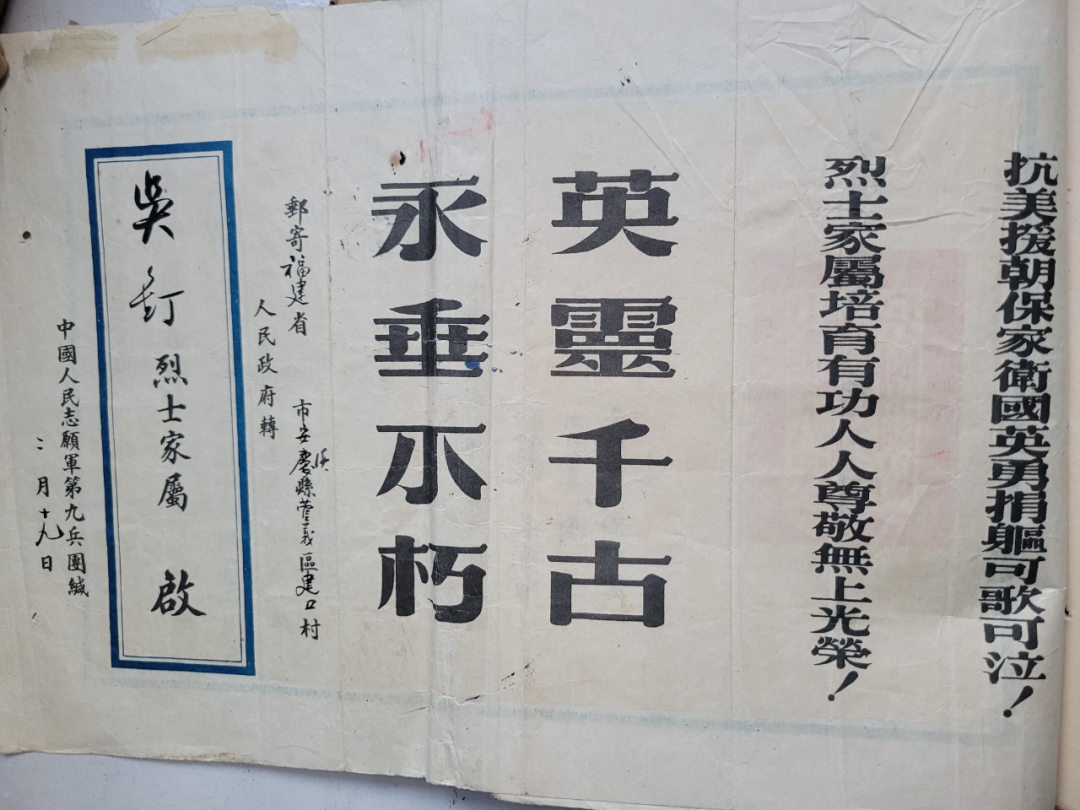 抗美援朝保家衛國英勇捐軀可歌可泣！
烈士家屬培育有功人人尊敬無上光榮！
英靈千古
永垂不朽
郵寄福建省 市安慶縣 義區建口村
人民政府轉
吳釘烈士家屬 啟
中國人民志願軍第九兵團緘
二月十九日